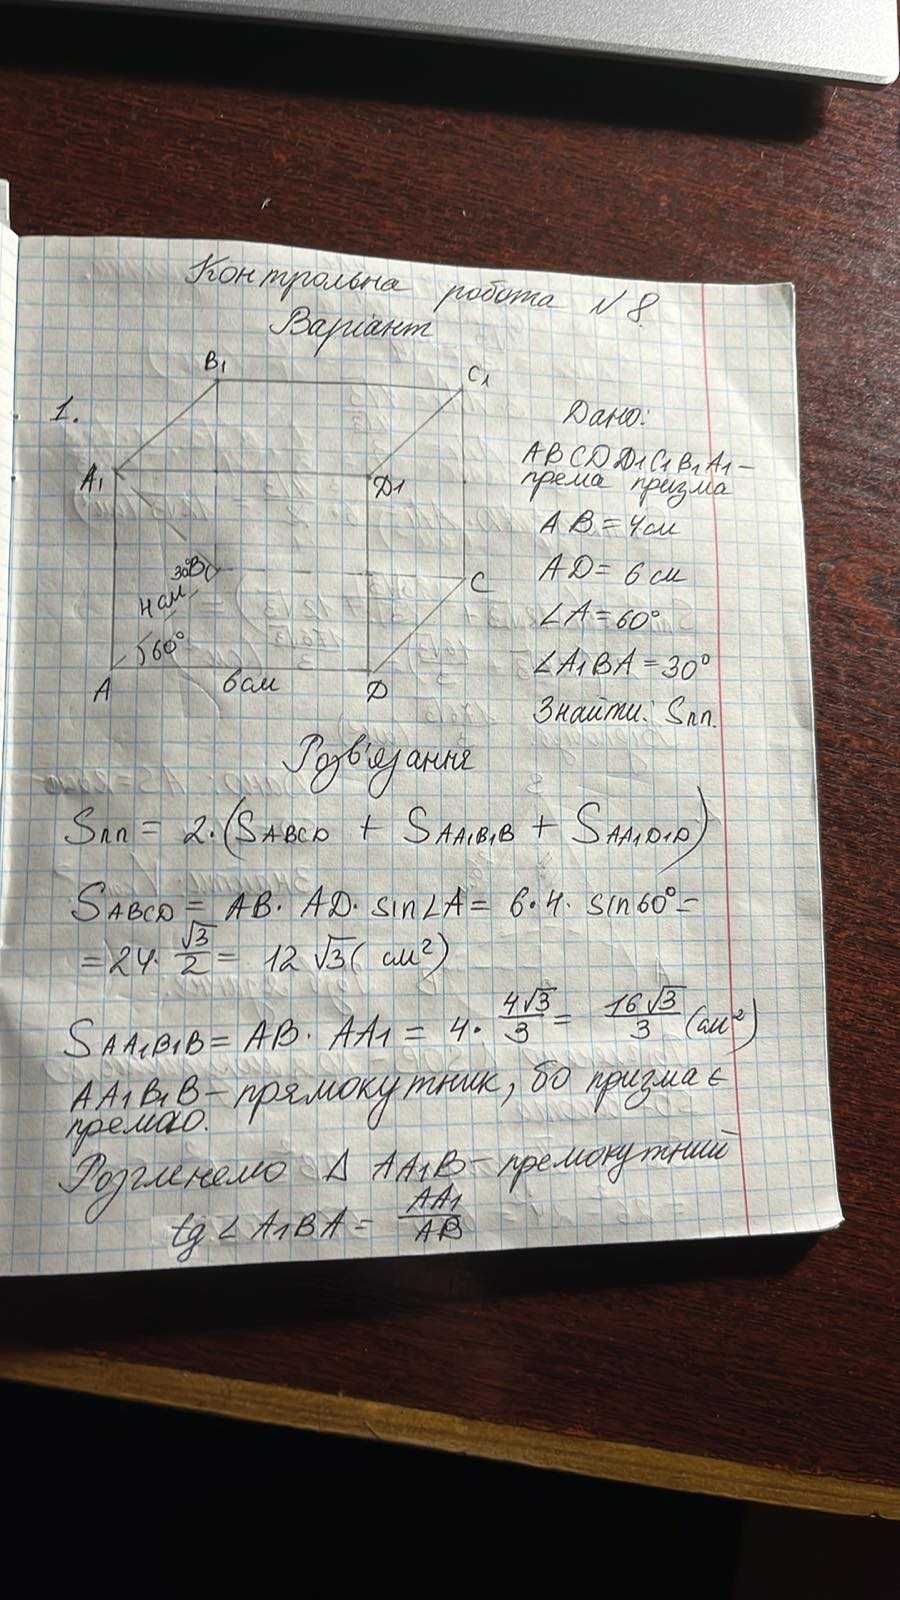 Контрольна робота №8.
Варіант
1.
B1
C1
A1
D1
30°
B
C
4 см
60°
A
6 см
D
Дано:
ABCDD1C1B1A1 –
према призма
AB = 4 см
AD = 6 см
∠A = 60°
∠A1BA = 30°
Знайти: Sпп.
Розв'язання
Sпп = 2·(SABCD + SAA1B1B + SAA1D1D)
SABCD = AB· AD· sin∠A = 6·4· sin60° =
= 24· √3/2 = 12√3( см²)
SAA1B1B = AB· AA1 = 4· 4√3/3 = 16√3/3 (см²)
AA1B1B – прямокутник, бо призма є
премою.
Розгленемо Δ AA1B – премокутний
tg∠A1BA = AA1/AB